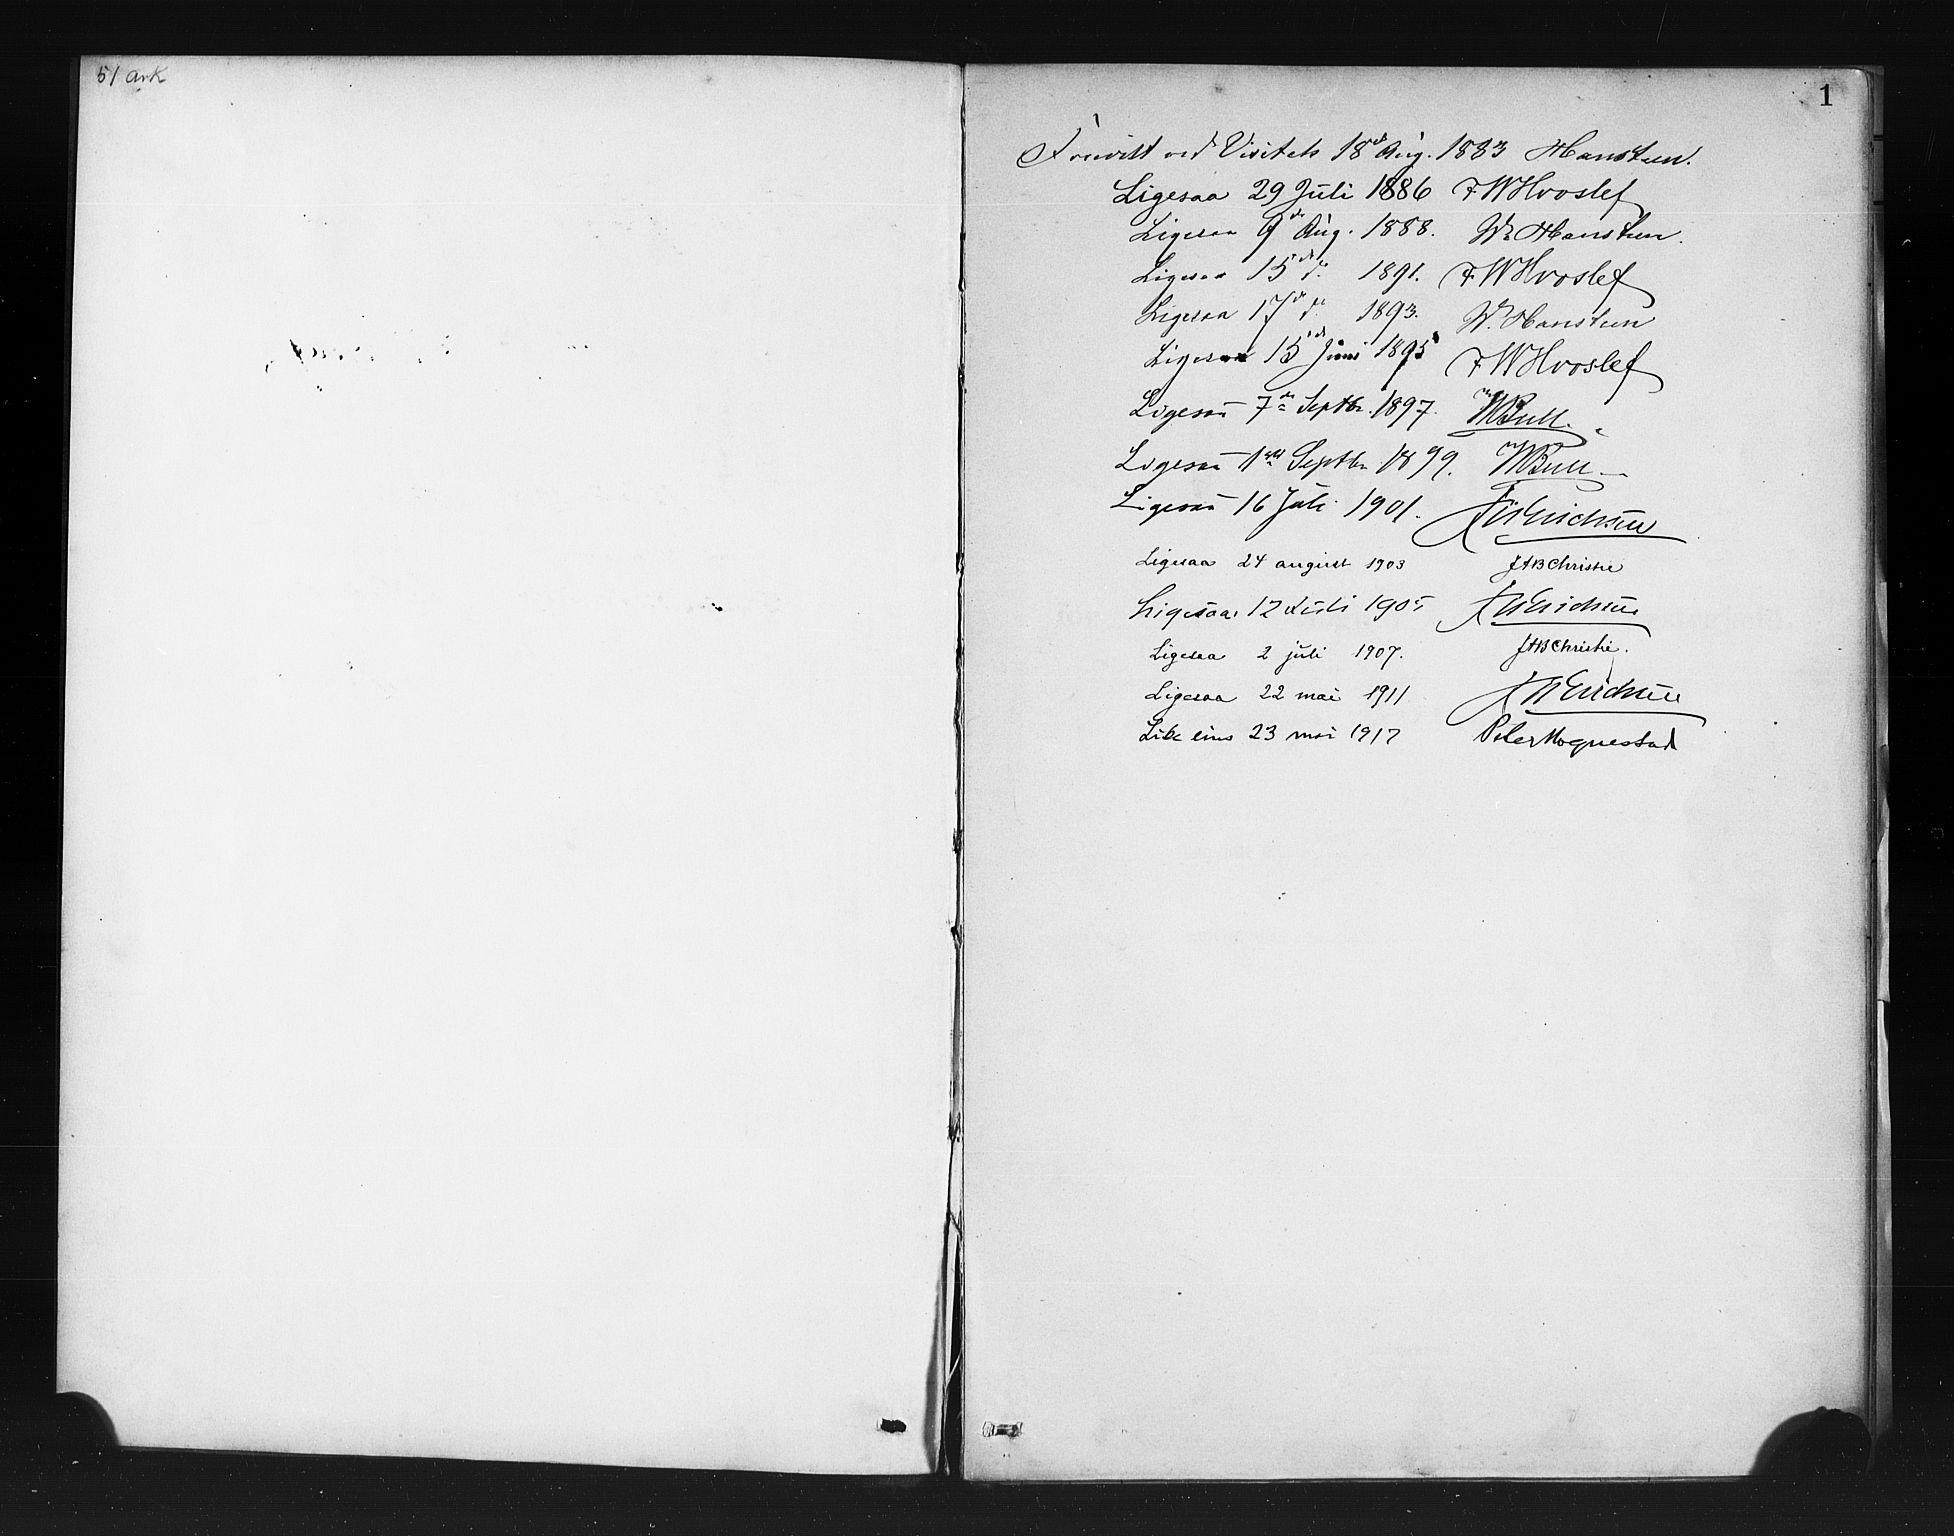 51 Ark
1
Forevist ved Visitats 18de Aug. 1883 Hansteen.
Ligesaa 29 Juli 1886 F W Hvoslef
Ligesaa 9de Aug. 1888. W. Hansteen.
Ligesaa 15de do 1891. F W Hvoslef
Ligesaa 17de do 1893. W. Hansteen
Ligesaa 15de Juni 1895 F W Hvoslef
Ligesaa 7de Septbr. 1897. Bull.
Ligesaa 1ste Septbr 1899. Bull
Ligesaa 16 Juli 1901. Erichsen
Ligesaa 24 august 1903 JAB Christie
Ligesaa 12 Juli 1905 Erichsen
Ligesaa 2 juli 1907. JAB Christie.
Ligesaa 22 mai 1911 Erichsen
Like eins 23 mai 1917 Peter Hognestad